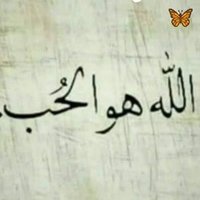 الله هو الحُب.